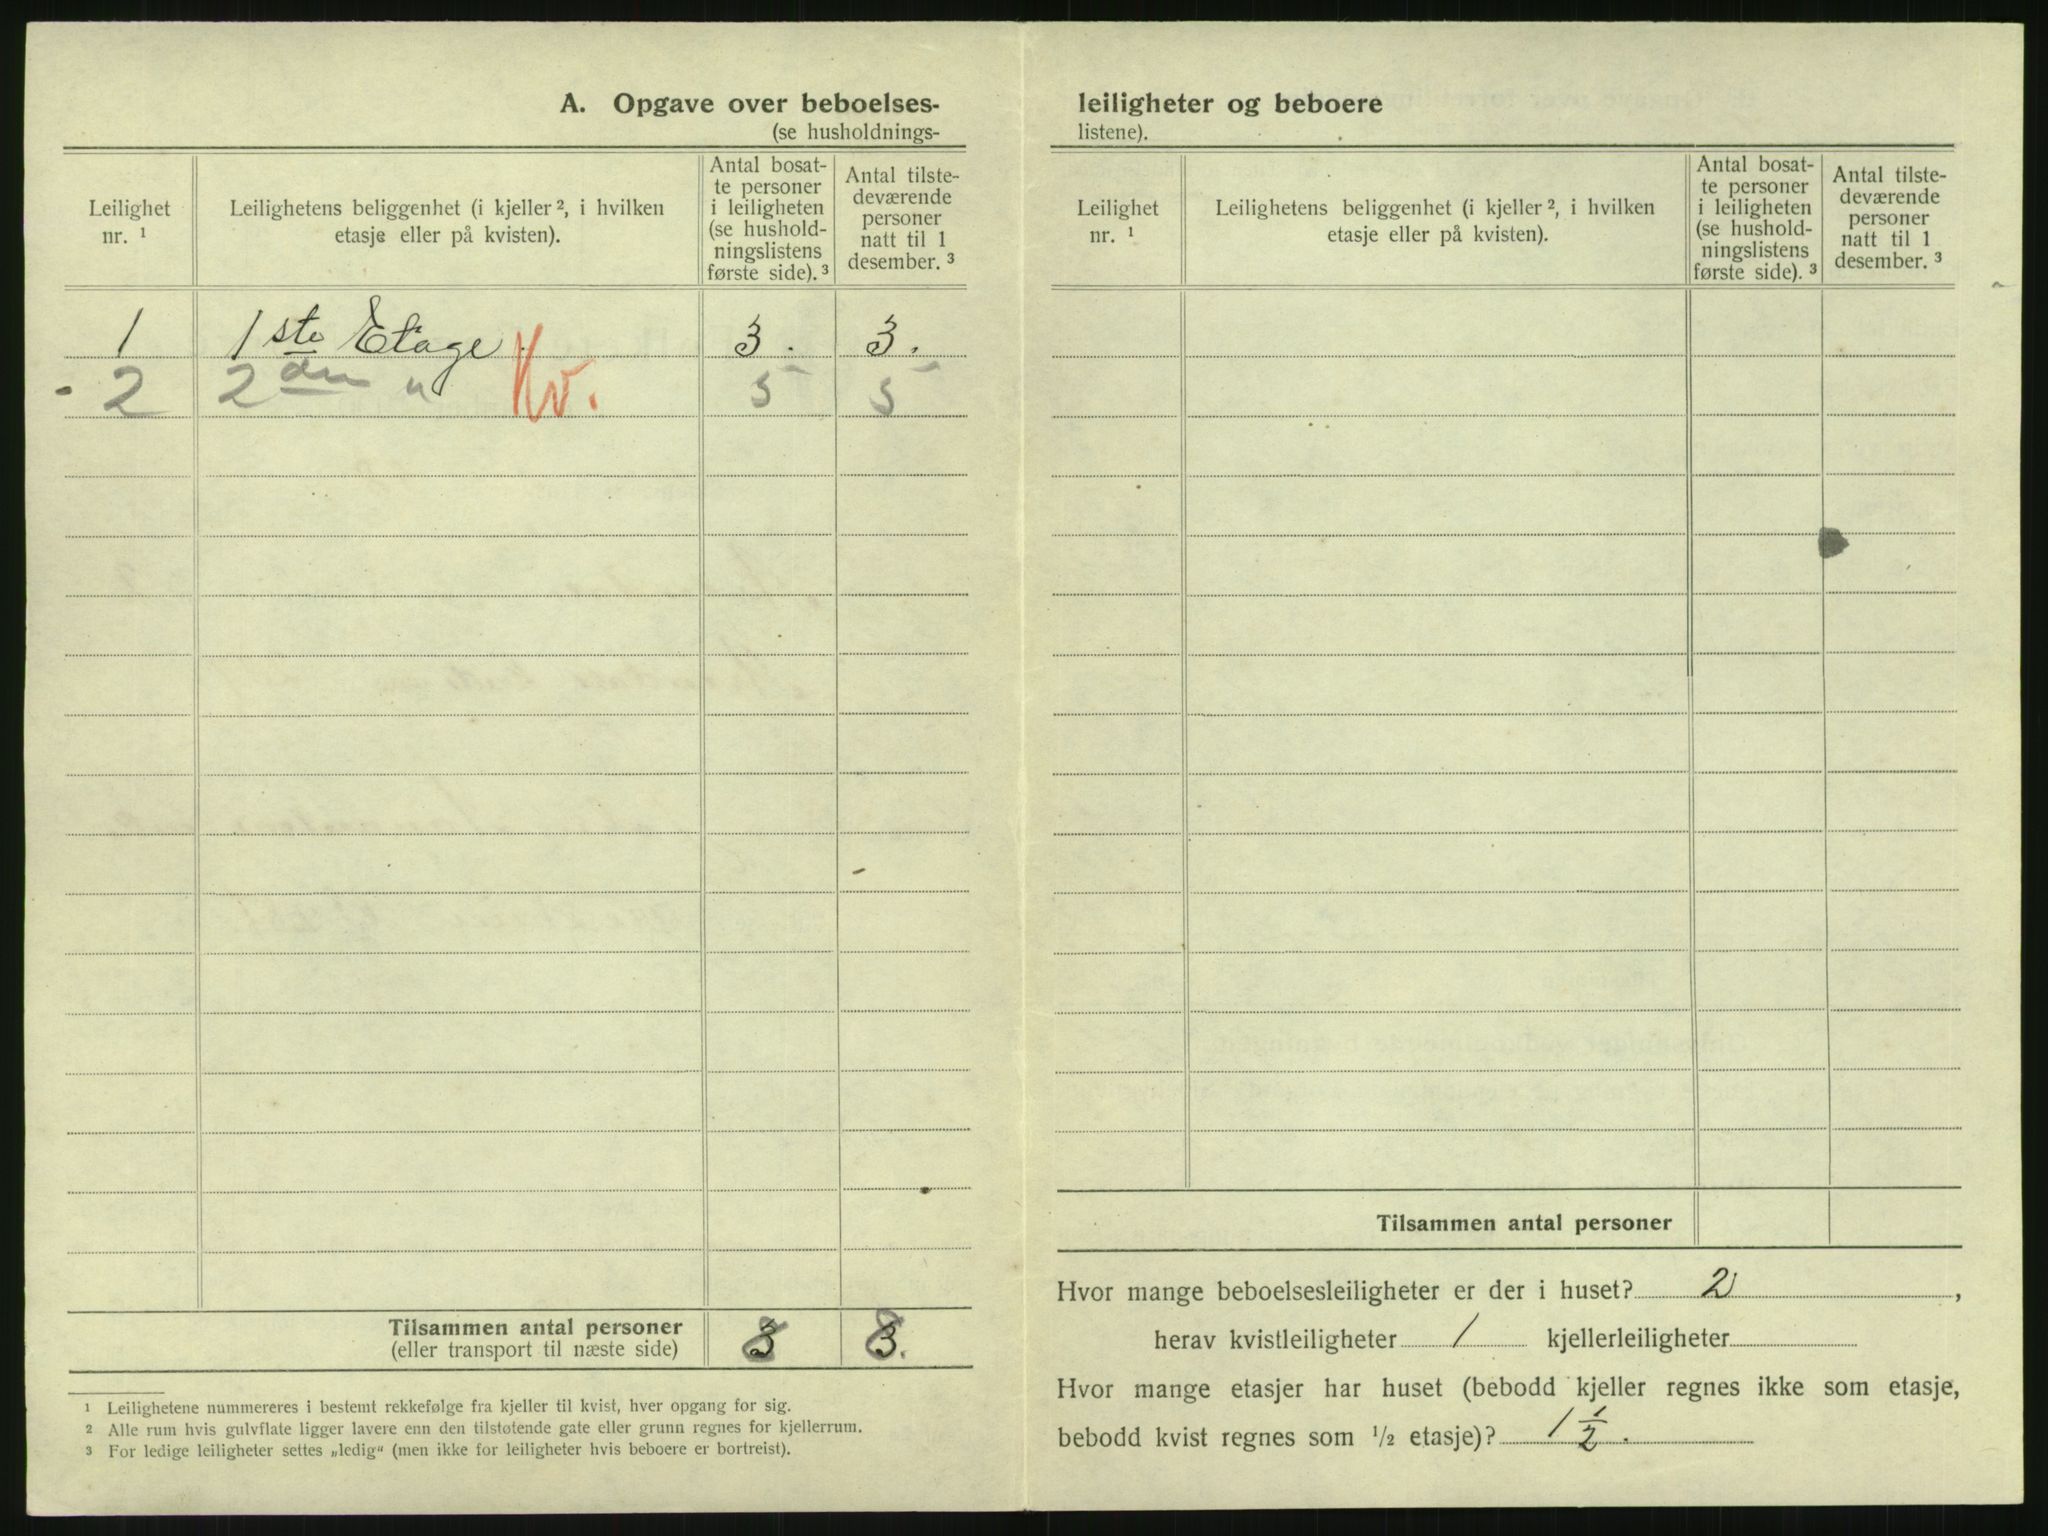 A. Opgave over beboelses-
(se husholdnings-
Leilighet nr. ¹
Leilighetens beliggenhet (i kjeller ², i hvilken etasje eller på kvisten).
Antal bosat-
te personer
i leiligheten
(se hushold-
ningslistens
første side). ³
Antal tilste-
deværende
personer
natt til 1
desember. ³
1 1ste Etage 3. 3.
2 2den " Kv. 5 5
Tilsammen antal personer 8 8.
(eller transport til næste side)
¹ Leilighetene nummereres i bestemt rekkefølge fra kjeller til kvist, hver opgang for sig.
² Alle rum hvis gulvflate ligger lavere enn den tilstøtende gate eller grunn regnes for kjellerrum.
³ For ledige leiligheter settes „ledig“ (men ikke for leiligheter hvis beboere er bortreist).
leiligheter og beboere
listene).
Leilighet nr. ¹
Leilighetens beliggenhet (i kjeller ², i hvilken etasje eller på kvisten).
Antal bosat-
te personer
i leiligheten
(se hushold-
ningslistens
første side). ³
Antal tilste-
deværende
personer
natt til 1
desember. ³
Tilsammen antal personer
Hvor mange beboelsesleiligheter er der i huset? 2,
herav kvistleiligheter 1 kjellerleiligheter
Hvor mange etasjer har huset (bebodd kjeller regnes ikke som etasje,
bebodd kvist regnes som ½ etasje)? 1 ½.